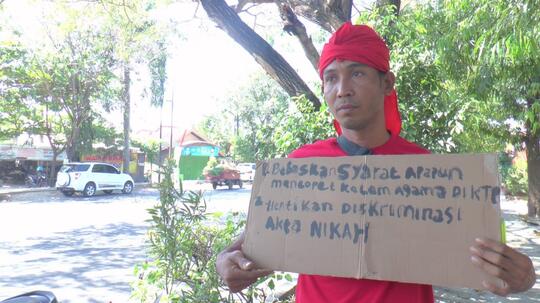 1. Bebaskan Syarat Apapun
mencoret kolom Agama Di KTP
2. Hentikan Diskriminasi
Akta NIKAH